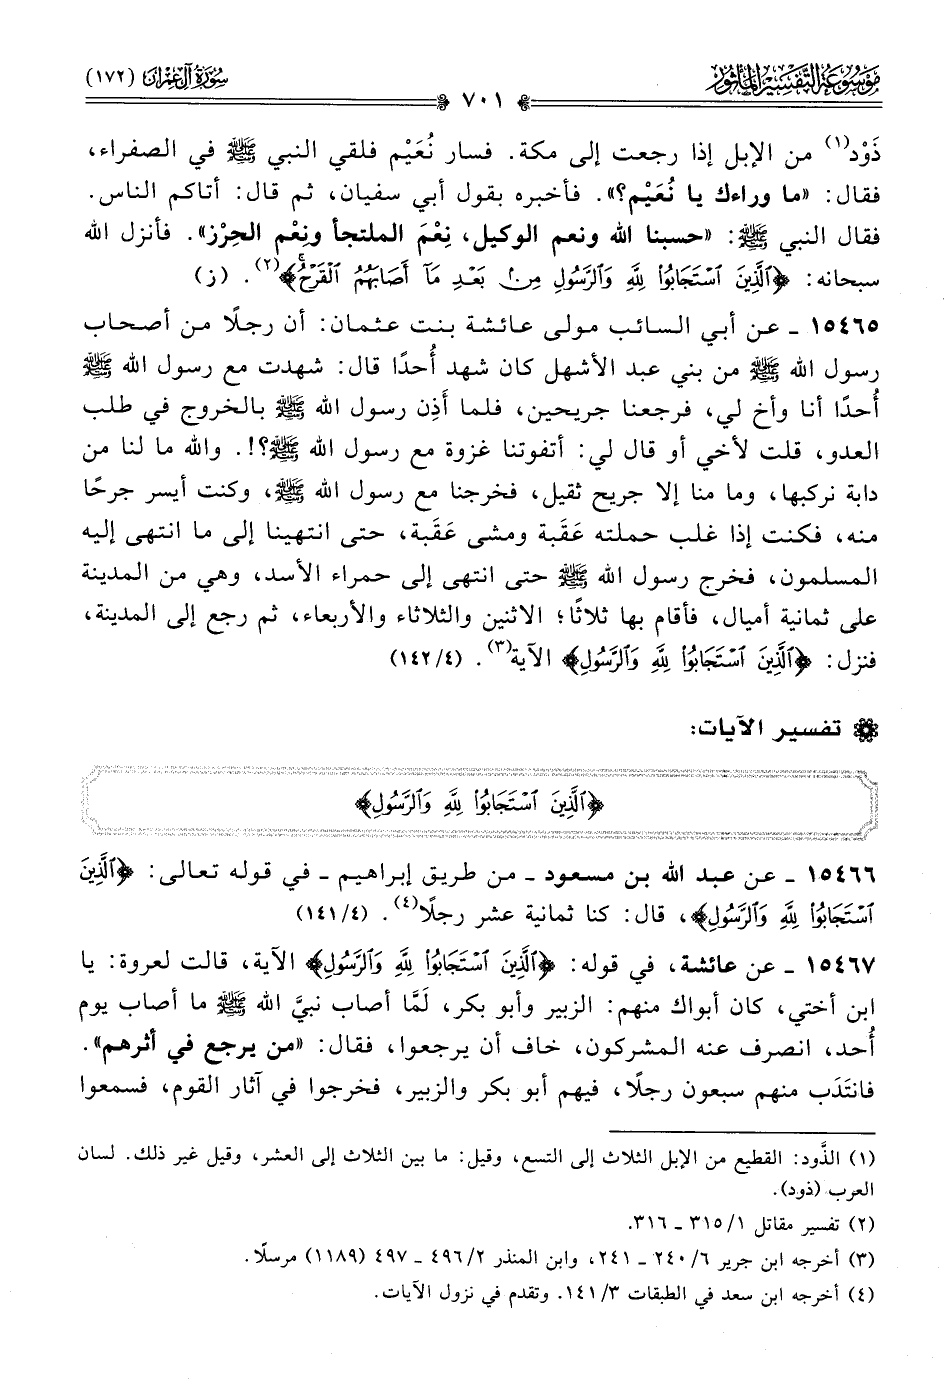 مَوْسُوعَةُ التَّفْسِيرِ المَأْثُورِ
سُورَةُ آلِ عِمْرَانَ (١٧٢)
٧٠١
ذَوْد(١) من الإبل إذا رجعت إلى مكة. فسار نُعَيْم فلقي النبي ﷺ في الصفراء،
فقال: «ما وراءك يا نُعَيْم؟». فأخبره بقول أبي سفيان، ثم قال: أتاكم الناس.
فقال النبي ﷺ: «حسبنا الله ونعم الوكيل، نِعْمَ الملتجأ ونِعْم الحِرْز». فأنزل الله
سبحانه: ﴿ٱلَّذِينَ ٱسْتَجَابُوا۟ لِلَّهِ وَٱلرَّسُولِ مِنۢ بَعْدِ مَآ أَصَابَهُمُ ٱلْقَرْحُۚ﴾(٢). (ز)
١٥٤٦٥ ـ عن أبي السائب مولى عائشة بنت عثمان: أن رجلًا من أصحاب
رسول الله ﷺ من بني عبد الأشهل كان شهد أُحدًا قال: شهدت مع رسول الله ﷺ
أُحدًا أنا وأخ لي، فرجعنا جريحين، فلما أَذِن رسول الله ﷺ بالخروج في طلب
العدو، قلت لأخي أو قال لي: أتفوتنا غزوة مع رسول الله ﷺ؟!. والله ما لنا من
دابة نركبها، وما منا إلا جريح ثقيل، فخرجنا مع رسول الله ﷺ، وكنت أيسر جرحًا
منه، فكنت إذا غلب حملته عَقَبة ومشى عَقَبة، حتى انتهينا إلى ما انتهى إليه
المسلمون، فخرج رسول الله ﷺ حتى انتهى إلى حمراء الأسد، وهي من المدينة
على ثمانية أميال، فأقام بها ثلاثًا؛ الاثنين والثلاثاء والأربعاء، ثم رجع إلى المدينة،
فنزل: ﴿ٱلَّذِينَ ٱسْتَجَابُوا۟ لِلَّهِ وَٱلرَّسُولِ﴾ الآية(٣). (١٤٢/٤)
تفسير الآيات:
﴿ٱلَّذِينَ ٱسْتَجَابُوا۟ لِلَّهِ وَٱلرَّسُولِ﴾
١٥٤٦٦ ـ عن عبد الله بن مسعود ـ من طريق إبراهيم ـ في قوله تعالى: ﴿ٱلَّذِينَ
ٱسْتَجَابُوا۟ لِلَّهِ وَٱلرَّسُولِ﴾، قال: كنا ثمانية عشر رجلًا(٤). (١٤١/٤)
١٥٤٦٧ ـ عن عائشة، في قوله: ﴿ٱلَّذِينَ ٱسْتَجَابُوا۟ لِلَّهِ وَٱلرَّسُولِ﴾ الآية، قالت لعروة: يا
ابن أختي، كان أبواك منهم: الزبير وأبو بكر، لَمَّا أصاب نبيَّ الله ﷺ ما أصاب يوم
أُحد، انصرف عنه المشركون، خاف أن يرجعوا، فقال: «من يرجع في أثرهم».
فانتَدَب منهم سبعون رجلًا، فيهم أبو بكر والزبير، فخرجوا في آثار القوم، فسمعوا
(١) الذَّود: القطيع من الإبل الثلاث إلى التسع، وقيل: ما بين الثلاث إلى العشر، وقيل غير ذلك. لسان
العرب (ذود).
(٢) تفسير مقاتل ٣١٥/١ ـ ٣١٦.
(٣) أخرجه ابن جرير ٢٤٠/٦ ـ ٢٤١، وابن المنذر ٤٩٦/٢ ـ ٤٩٧ (١١٨٩) مرسلًا.
(٤) أخرجه ابن سعد في الطبقات ١٤١/٣. وتقدم في نزول الآيات.